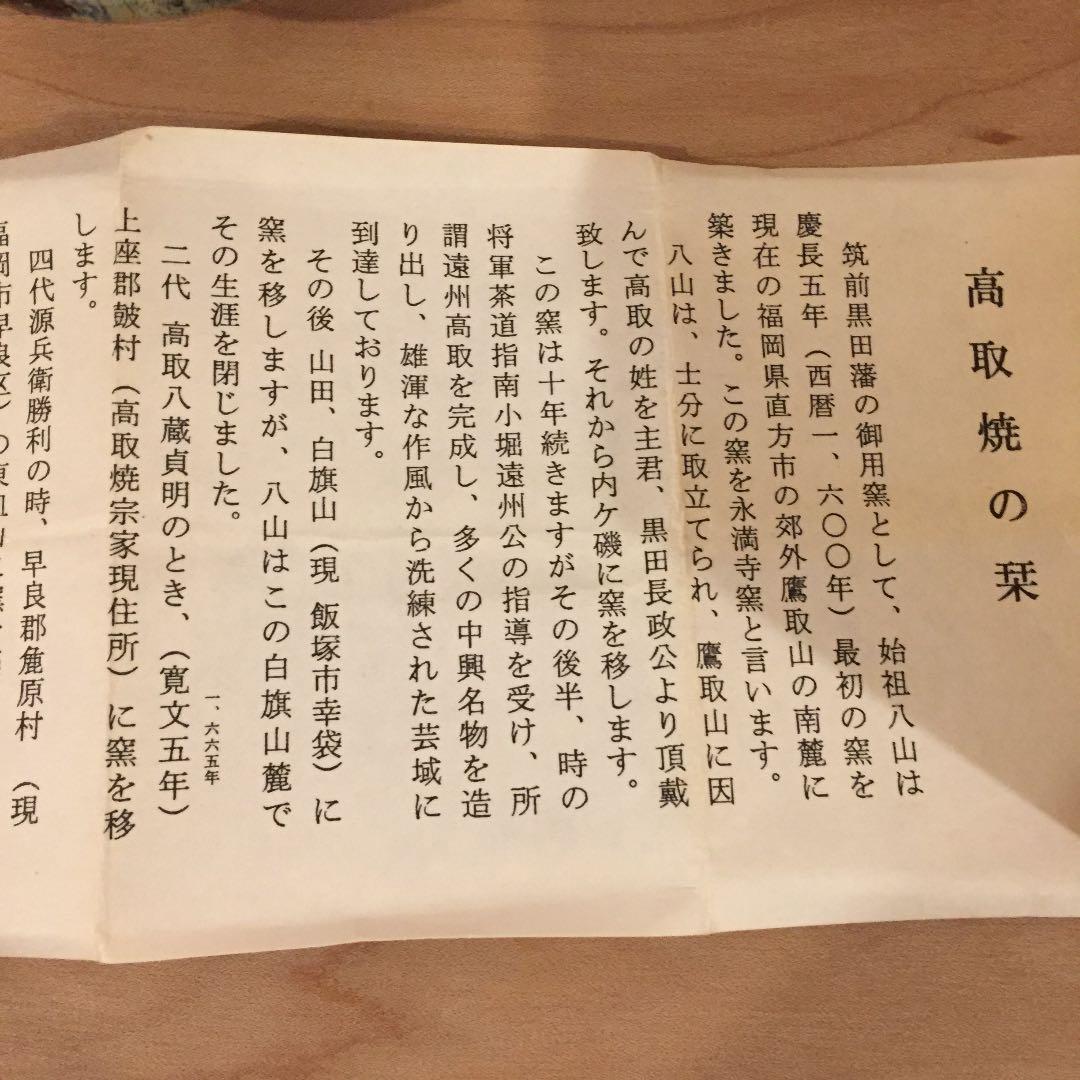 高取焼の栞
筑前黒田藩の御用窯として、始祖八山は
慶長五年（西暦一、六〇〇年）最初の窯を
現在の福岡県直方市の郊外鷹取山の南麓に
築きました。この窯を永満寺窯と言います。
八山は、士分に取立てられ、鷹取山に因
んで高取の姓を主君、黒田長政公より頂戴
致します。それから内ケ磯に窯を移します。
この窯は十年続きますがその後半、時の
将軍茶道指南小堀遠州公の指導を受け、所
謂遠州高取を完成し、多くの中興名物を造
り出し、雄渾な作風から洗練された芸域に
到達しております。
その後 山田、白旗山（現 飯塚市幸袋）に
窯を移しますが、八山はこの白旗山麓で
その生涯を閉じました。
一、六六五年
二代 高取八蔵貞明のとき、（寛文五年）
上座郡皷村（高取焼宗家現住所）に窯を移
します。
四代源兵衛勝利の時、早良郡麁原村 （現
福岡市早良区）の東皿山